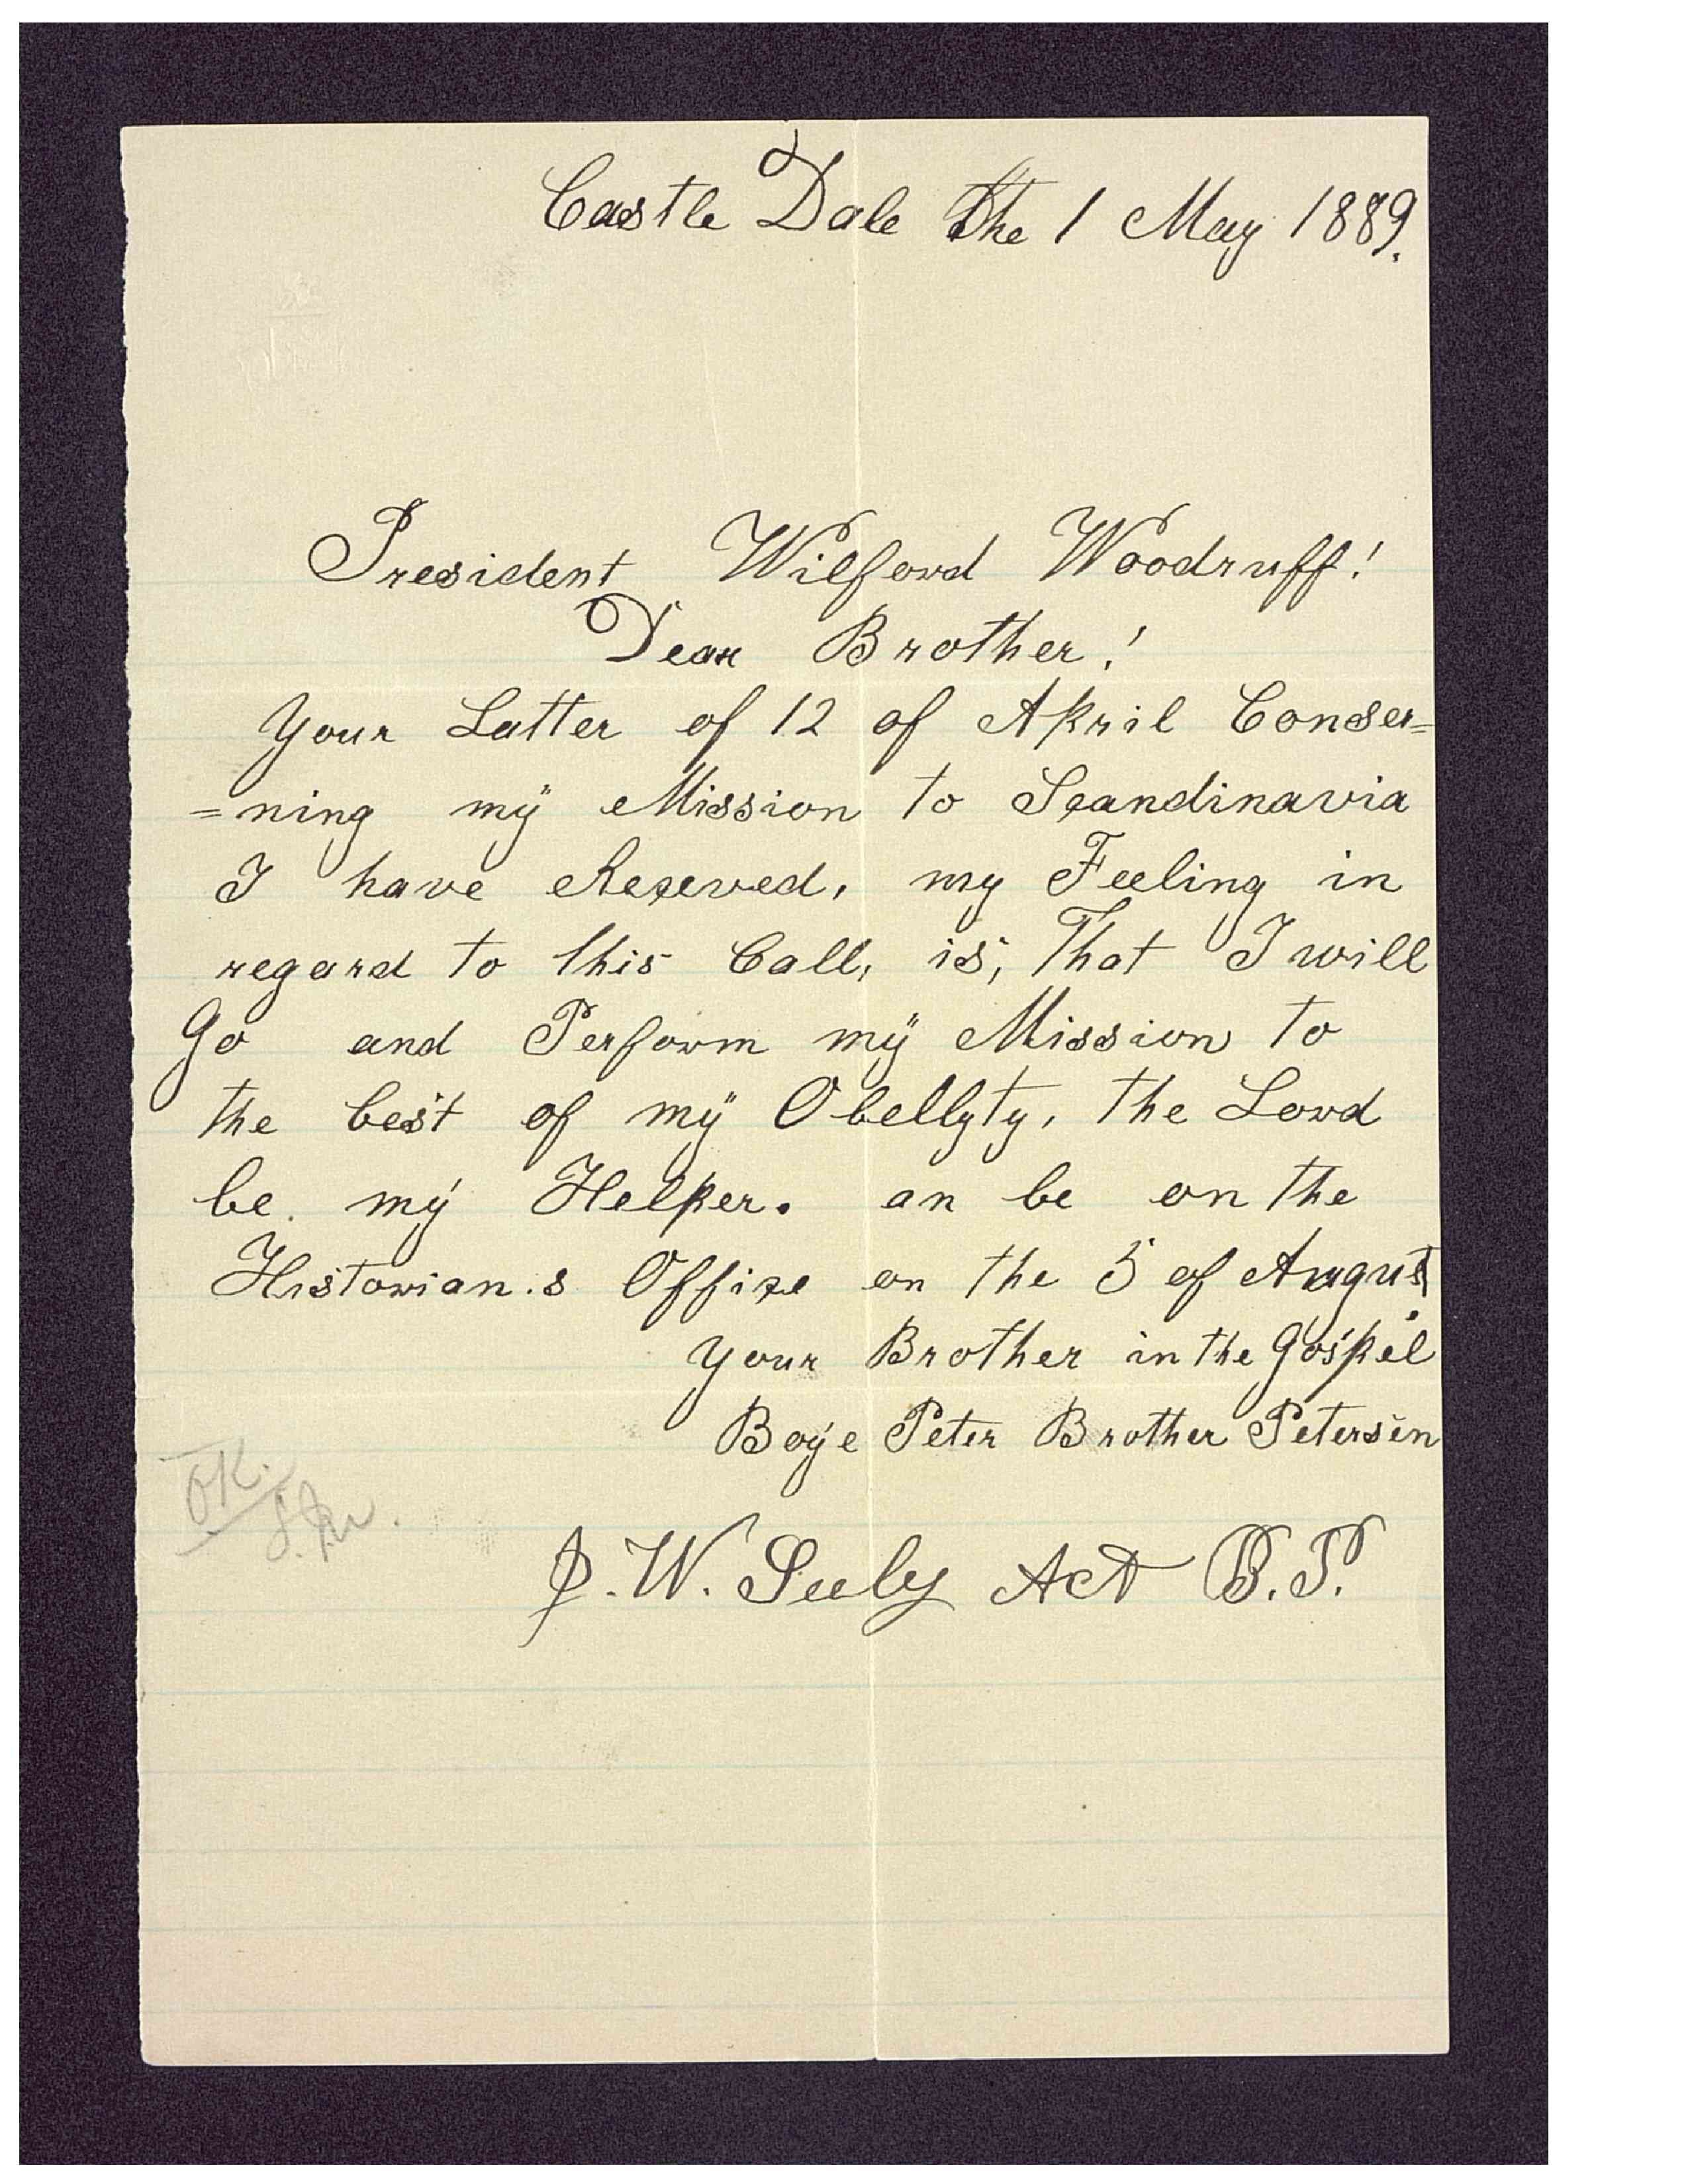 Castle Dale the 1 May 1889.
President Wilford Woodruff!
Dear Brother!
Your Latter of 12 of April Conser=
=ning my Mission to Scandinavia
I have Reseved, my Feeling in
regard to this Call, is, That I will
Go and Perform my Mission to
the best of my Obellyty, the Lord
be my Helper. an be on the
Historian.s Offise on the 5 of August.
Your Brother in the Gospel
Boye Peter Brother Petersen
OK.
J. W. Seely Act B.P.